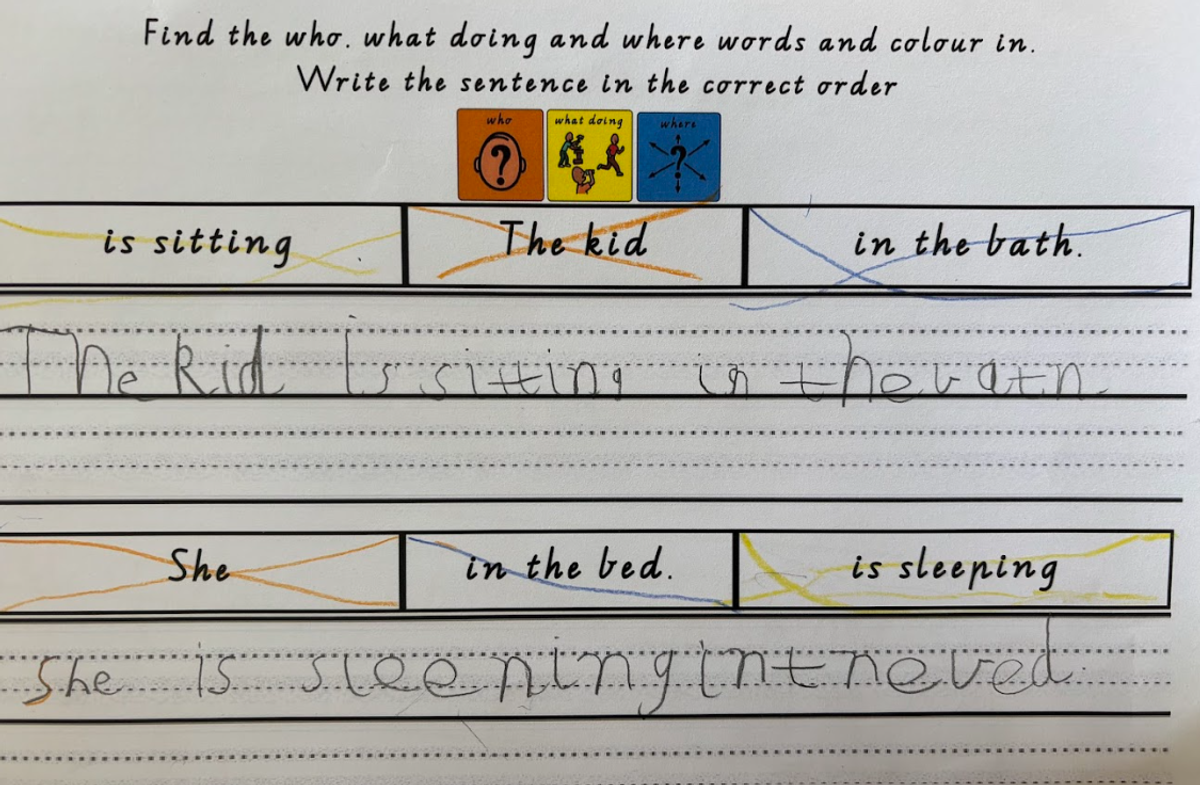 Find the who. what doing and where words and colour in.
Write the sentence in the correct order
who what doing where
is sitting The kid in the bath.
The kid Is sitting in the vatn.
She in the bed. is sleeping
she is sleeping in tne ved.